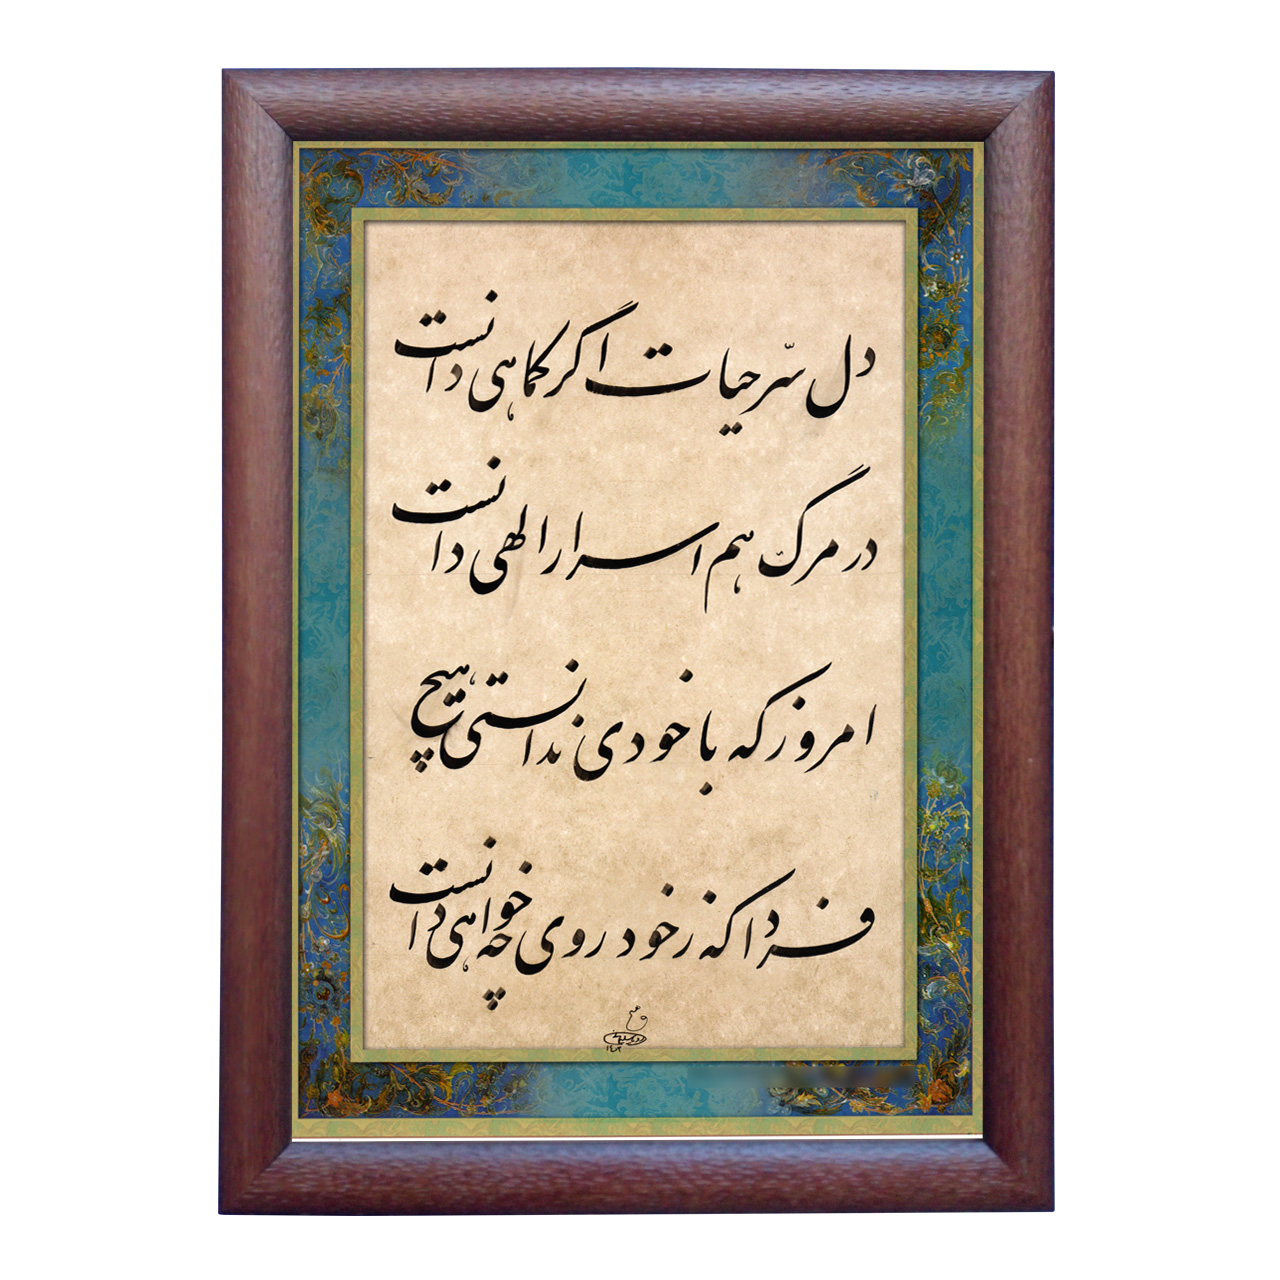 دل سرّ حیات اگر کماهی دانست
در مرگ هم اسرار الهی دانست
امروز که با خودی ندانستی هیچ
فردا که ز خود روی چه خواهی دانست